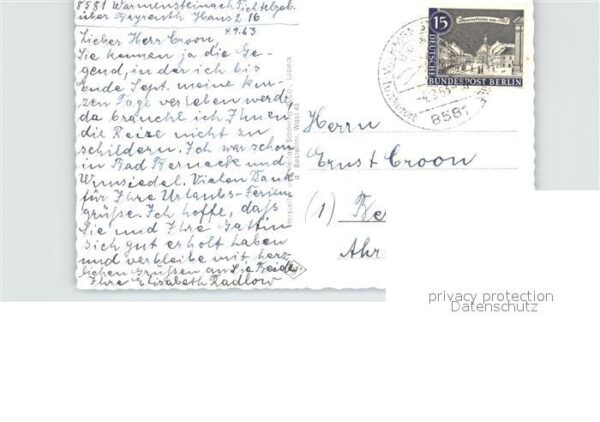 8581 Warmensteinach Fichtelgeb.
über Bayreuth Haus 2 16
9.63
Lieber Herr Croon,
Sie kennen ja die Ge-
gend, in der ich bis
Ende Sept. meine kur-
zen Tage verleben werde,
da brauche ich Ihnen
die Reise nicht zu
schildern. Ich war schon
in Bad Berneck und
Wunsiedel. Vielen Dank
für Ihre Urlaubs-Ferien
grüße. Ich hoffe, daß
Sie und Ihre Gattin
sich gut erholt haben
und verbleibe mit herz-
lichen Grüßen an Sie Beide
Ihre Elisabeth Radlow
15
DEUTSCHE
BUNDESPOST BERLIN
8581
Herrn
Ernst Croon
(1) Be
Ahr
privacy protection
Datenschutz